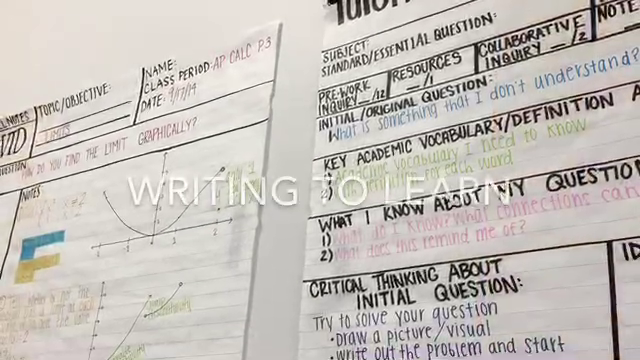 TOPIC/OBJECTIVE:
LIMITS
NAME:
CLASS PERIOD: AP CALC P.3
DATE: 9/17/19
HOW DO YOU FIND THE LIMIT GRAPHICALLY?
NOTES
SUBJECT:
STANDARD/ESSENTIAL QUESTION:
PRE-WORK
INQUIRY __/12
RESOURCES
__/1
COLLABORATIVE
INQUIRY __/2
NOTE
INITIAL/ORIGINAL QUESTION:
What is something that I don't understand?
KEY ACADEMIC VOCABULARY/DEFINITION
1) Academic vocabulary I need to know
2) Definition for each word
WRITING TO LEARN
WHAT I KNOW ABOUT MY QUESTION
1) What do I know? What connections can
2) What does this remind me of?
CRITICAL THINKING ABOUT
INITIAL QUESTION:
Try to solve your question
• Draw a picture/visual
• Write out the problem and start